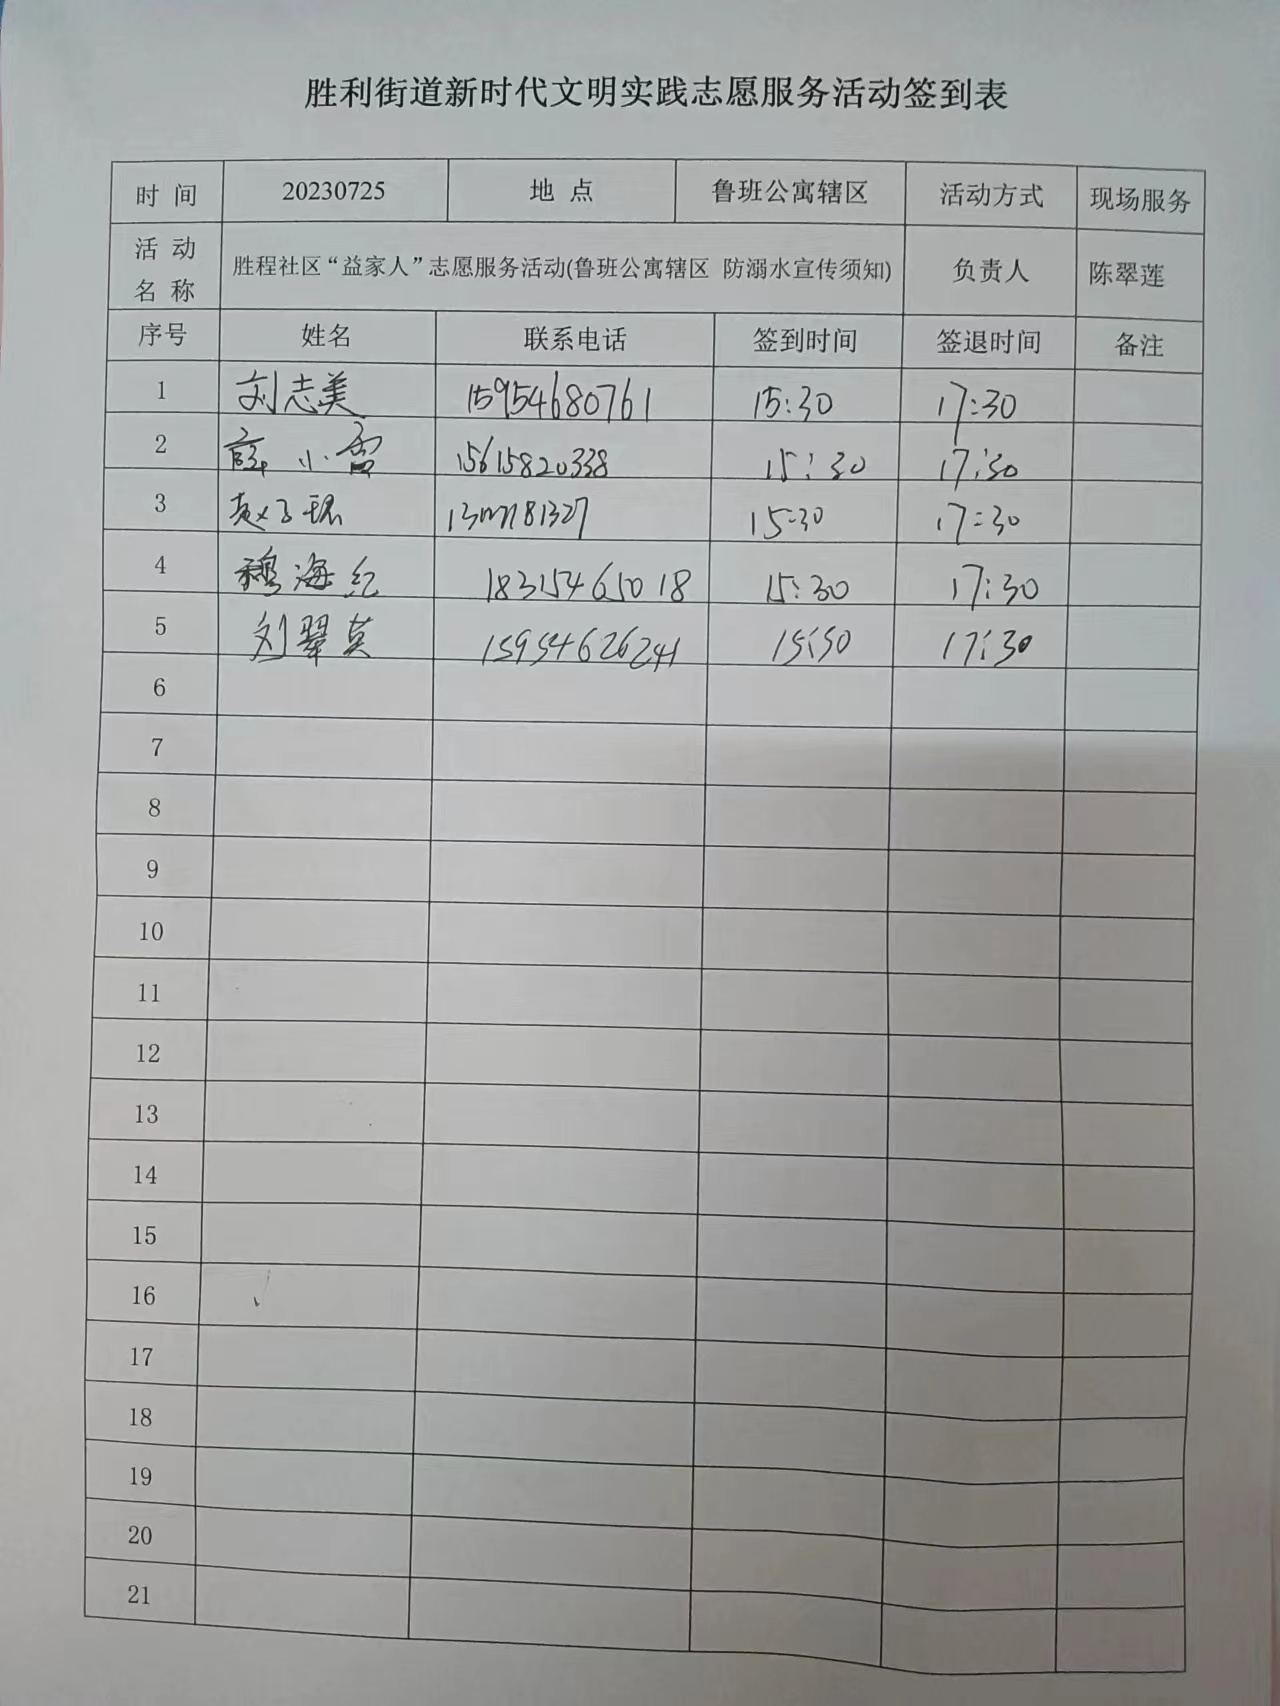 胜利街道新时代文明实践志愿服务活动签到表
时 间 20230725 地 点 鲁班公寓辖区 活动方式 现场服务
活 动
名 称 胜程社区“益家人”志愿服务活动(鲁班公寓辖区 防溺水宣传须知) 负责人 陈翠莲
序号 姓名 联系电话 签到时间 签退时间 备注
1 刘志美 15954680761 15:30 17:30
2 薛小雷 15615820338 15:30 17:30
3 赵子琚 15:30 17:30
4 穆海红 18315465018 15:30 17:30
5 刘翠英 15954626241 15:30 17:30
6
7
8
9
10
11
12
13
14
15
16
17
18
19
20
21